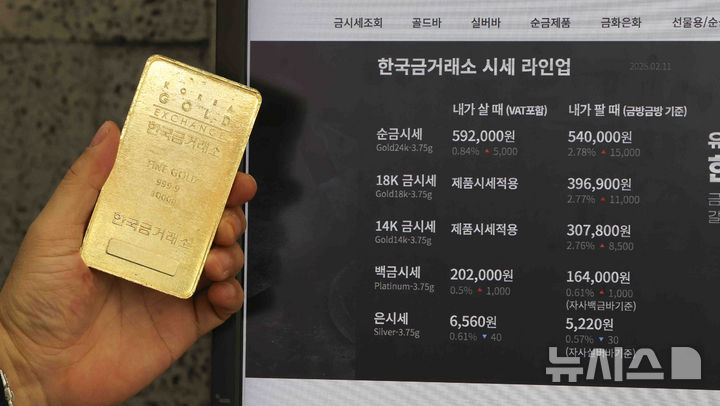 금시세조회 골드바 실버바 순금제품 금화은화 선물용/순
한국금거래소 시세 라인업 2025.02.11
내가 살 때 (VAT포함) 내가 팔 때 (금방금방 기준)
순금시세 592,000원 540,000원
Gold24k-3.75g 0.84% ▲ 5,000 2.78% ▲ 15,000
18K 금시세 제품시세적용 396,900원
Gold18k-3.75g 2.77% ▲ 11,000
14K 금시세 제품시세적용 307,800원
Gold14k-3.75g 2.76% ▲ 8,500
백금시세 202,000원 164,000원
Platinum-3.75g 0.5% ▲ 1,000 0.61% ▲ 1,000
(자사백금바기준)
은시세 6,560원 5,220원
Silver-3.75g 0.61% ▼ 40 0.57% ▼ 30
(자사실버바기준)
KOREA
GOLD
EXCHANGE
한국금거래소
FINE GOLD
999.9
1000g
한국금거래소
뉴시스